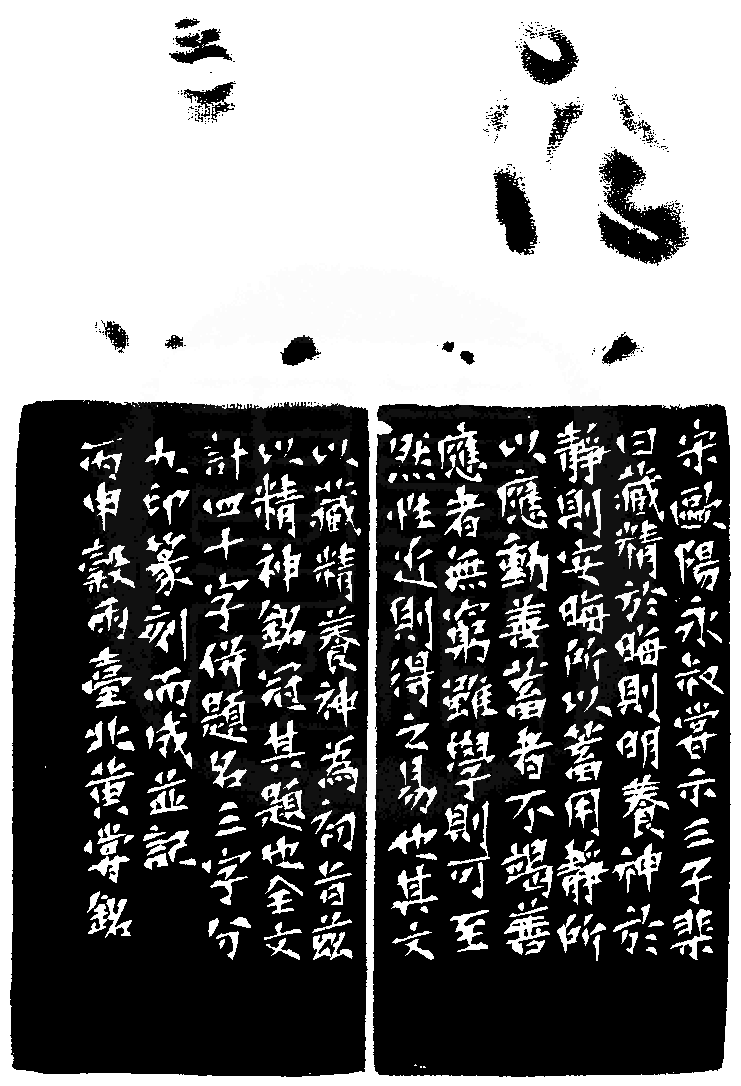 宋歐陽永叔嘗示三子棐
曰藏精於晦則明養神於
靜則安晦所以蓄用靜所
以應動善蓄者不竭善
應者無窮雖學則可至
然性近則得之易也其文
以藏精養神為初首茲
以精神銘冠其題也全文
計四十字併題名三字分
九印篆刻而成並記
丙申穀雨臺北黃嘗銘